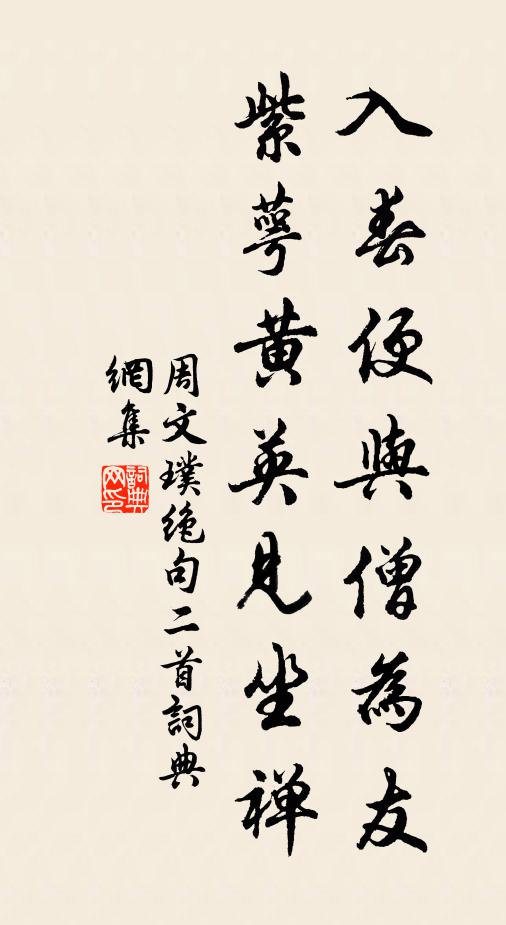 入春便與僧為友
紫萼黄英見坐禅
周文璞絶句二首詞典
網集
詞典
网印